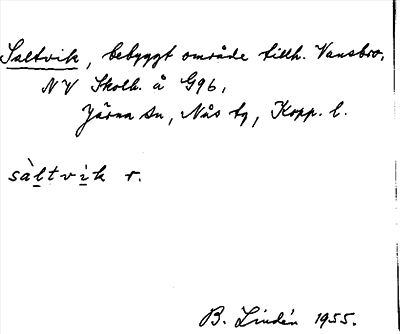 Saltvik, bebyggt område tillh. Vansbro,
NV Skolh. å G96,
Järna sn, Nås tg, Kopp. l.
sàltvik r.
B. Lindén 1955.